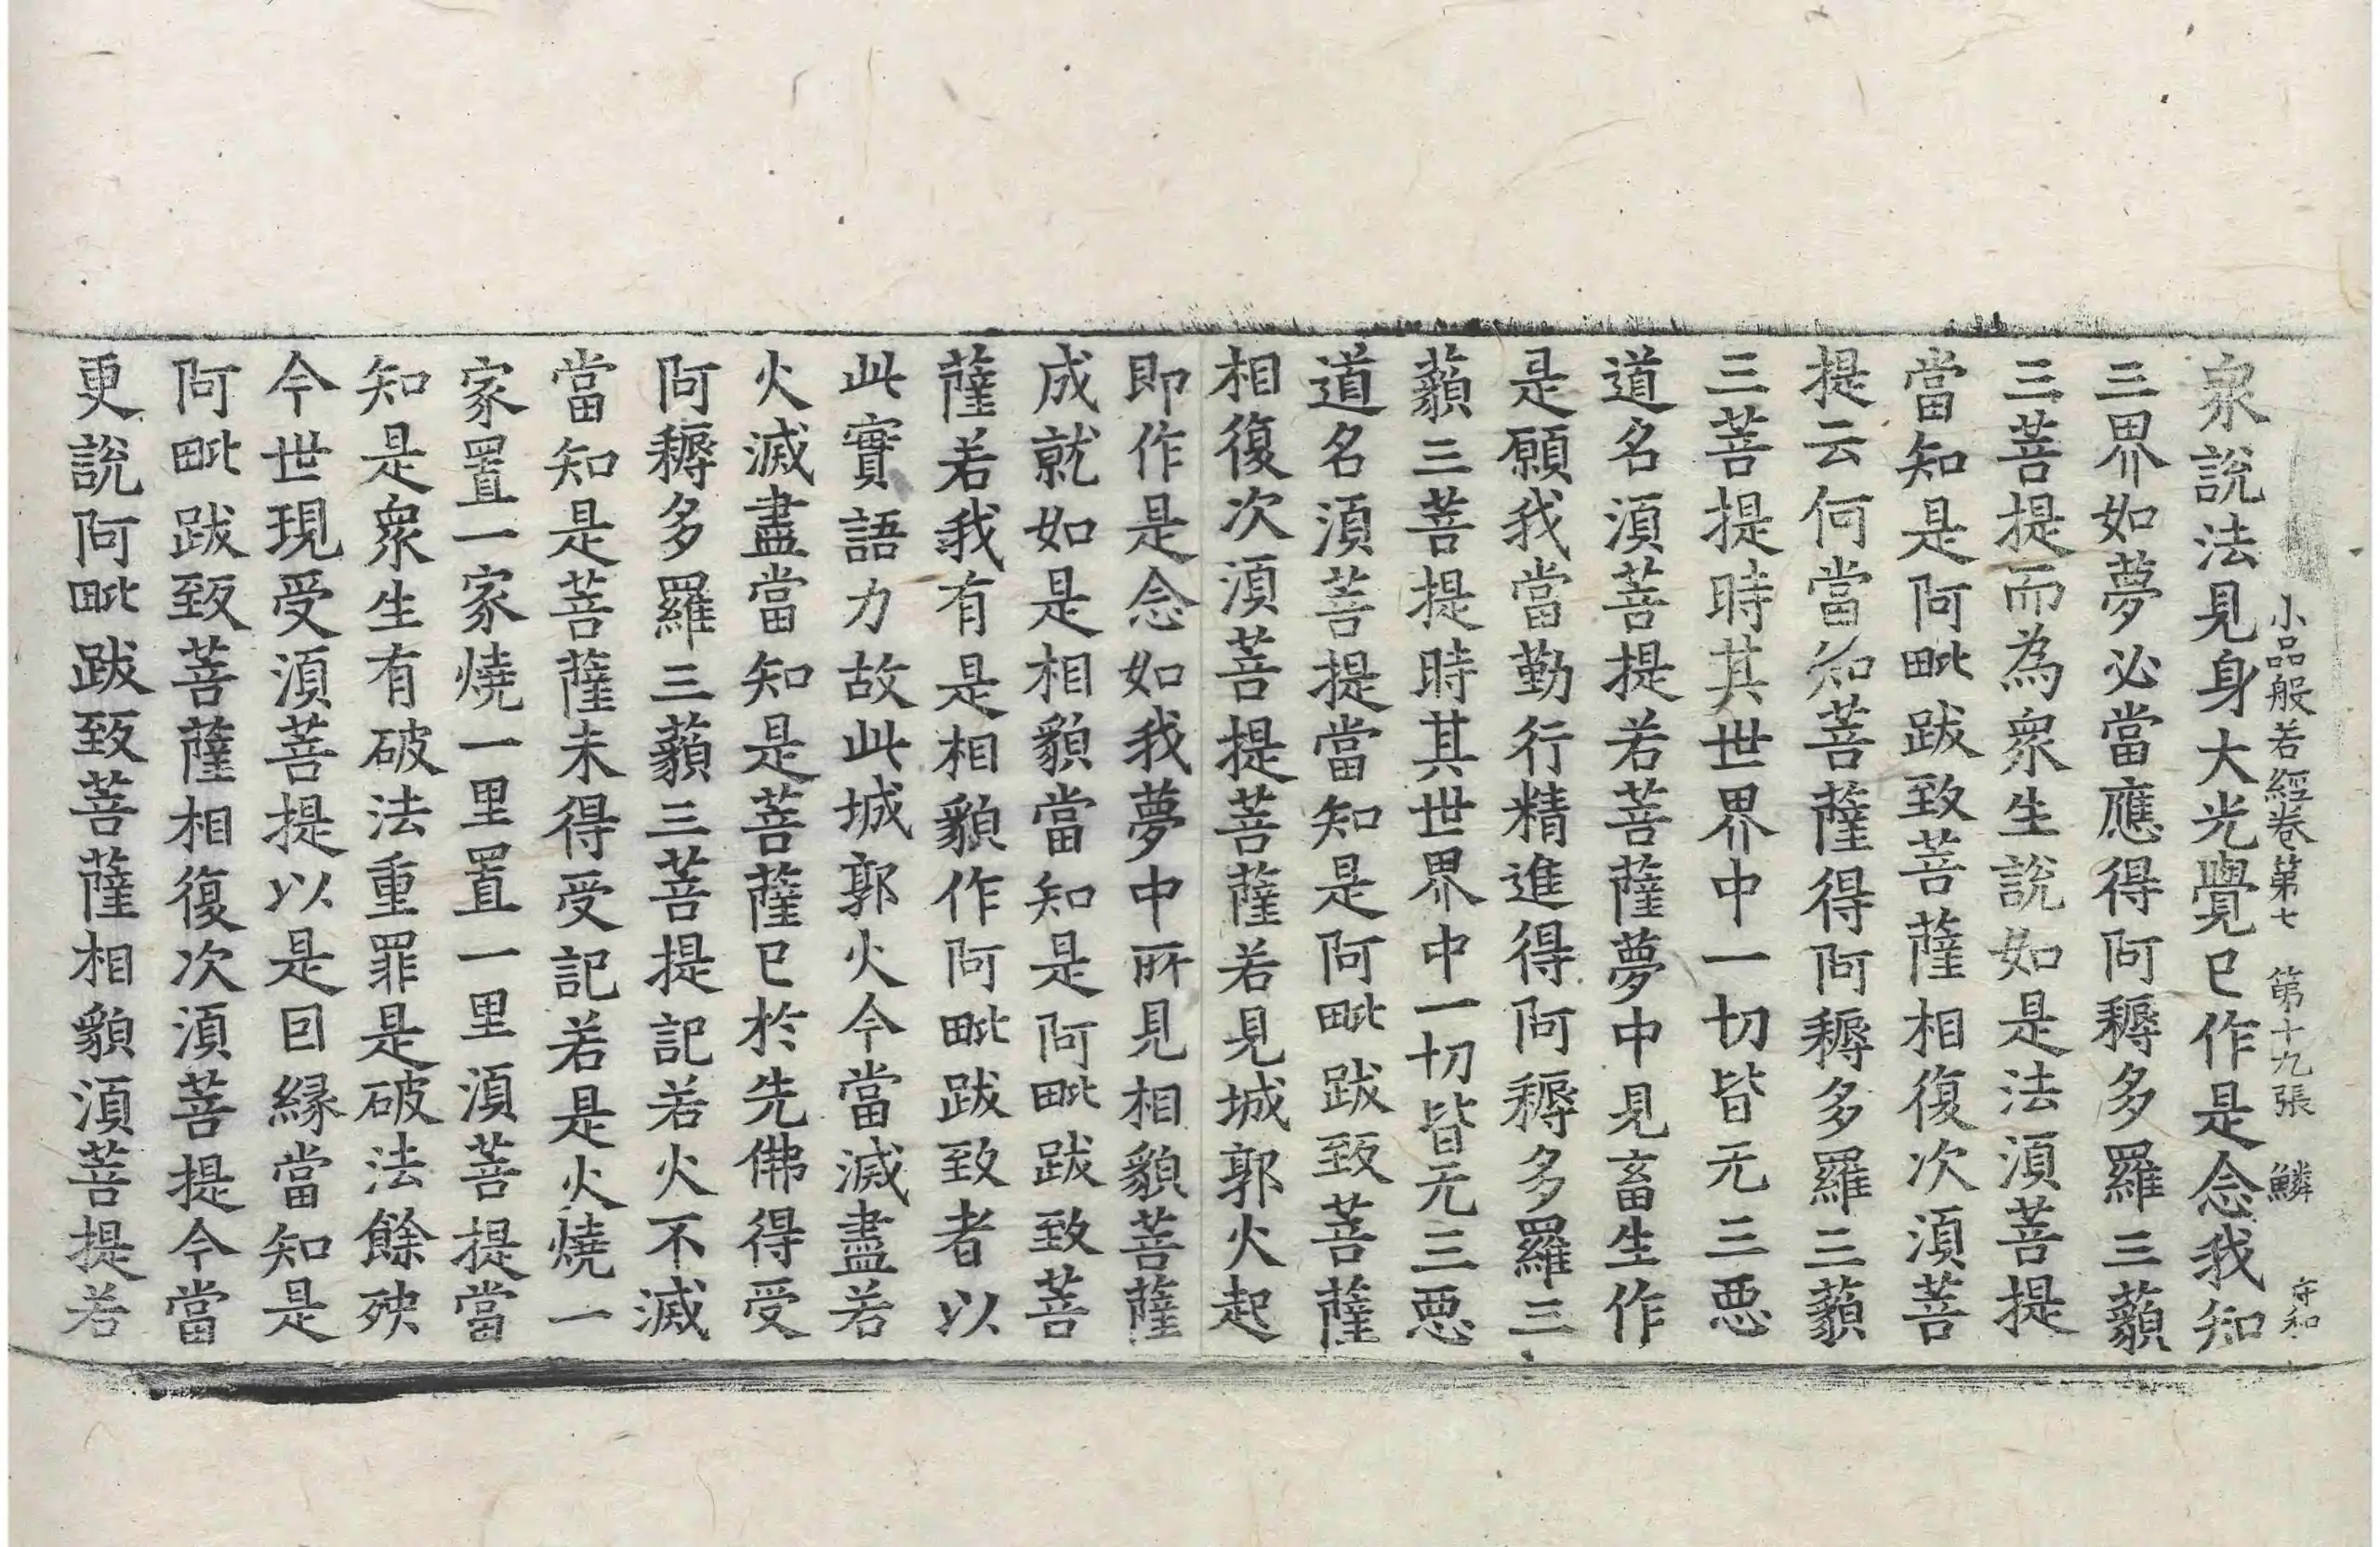 小品般若經卷第七 第十九張 鱗 守和
衆說法見身大光覺已作是念我知
三界如夢必當應得阿耨多羅三藐
三菩提而為衆生說如是法須菩提
當知是阿毗跋致菩薩相復次須菩
提云何當知菩薩得阿耨多羅三藐
三菩提時其世界中一切皆无三惡
道名須菩提若菩薩夢中見畜生作
是願我當勤行精進得阿耨多羅三
藐三菩提時其世界中一切皆无三惡
道名須菩提當知是阿毗跋致菩薩
相復次須菩提菩薩若見城郭火起
即作是念如我夢中所見相貌菩薩
成就如是相貌當知是阿毗跋致菩
薩若我有是相貌作阿毗跋致者以
此實語力故此城郭火今當滅盡若
火滅盡當知是菩薩已於先佛得受
阿耨多羅三藐三菩提記若火不滅
當知是菩薩未得受記若是火燒一
家置一家燒一里置一里須菩提當
知是衆生有破法重罪是破法餘殃
今世現受須菩提以是因緣當知是
阿毗跋致菩薩相復次須菩提今當
更說阿毗跋致菩薩相貌須菩提若